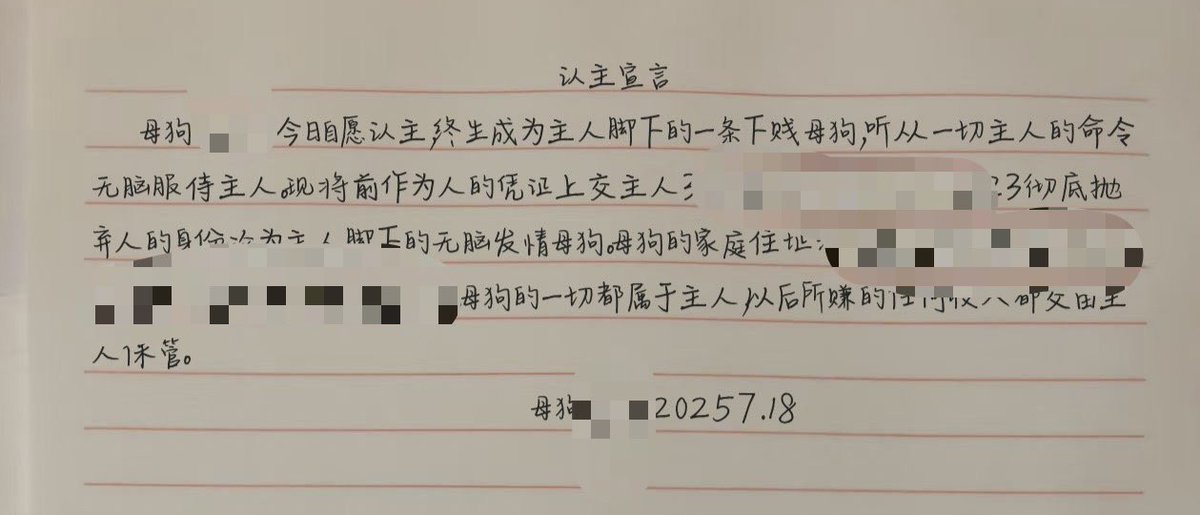 认主宣言
母狗 今日自愿认主,终生成为主人脚下的一条下贱母狗,听从一切主人的命令
无脑服侍主人。现将前作为人的凭证上交主人 3彻底抛
弃人的身份 为主人脚下的无脑发情母狗。母狗的家庭住址:
母狗的一切都属于主人,以后所赚的任何收入都交由主
人保管。
母狗 20257.18